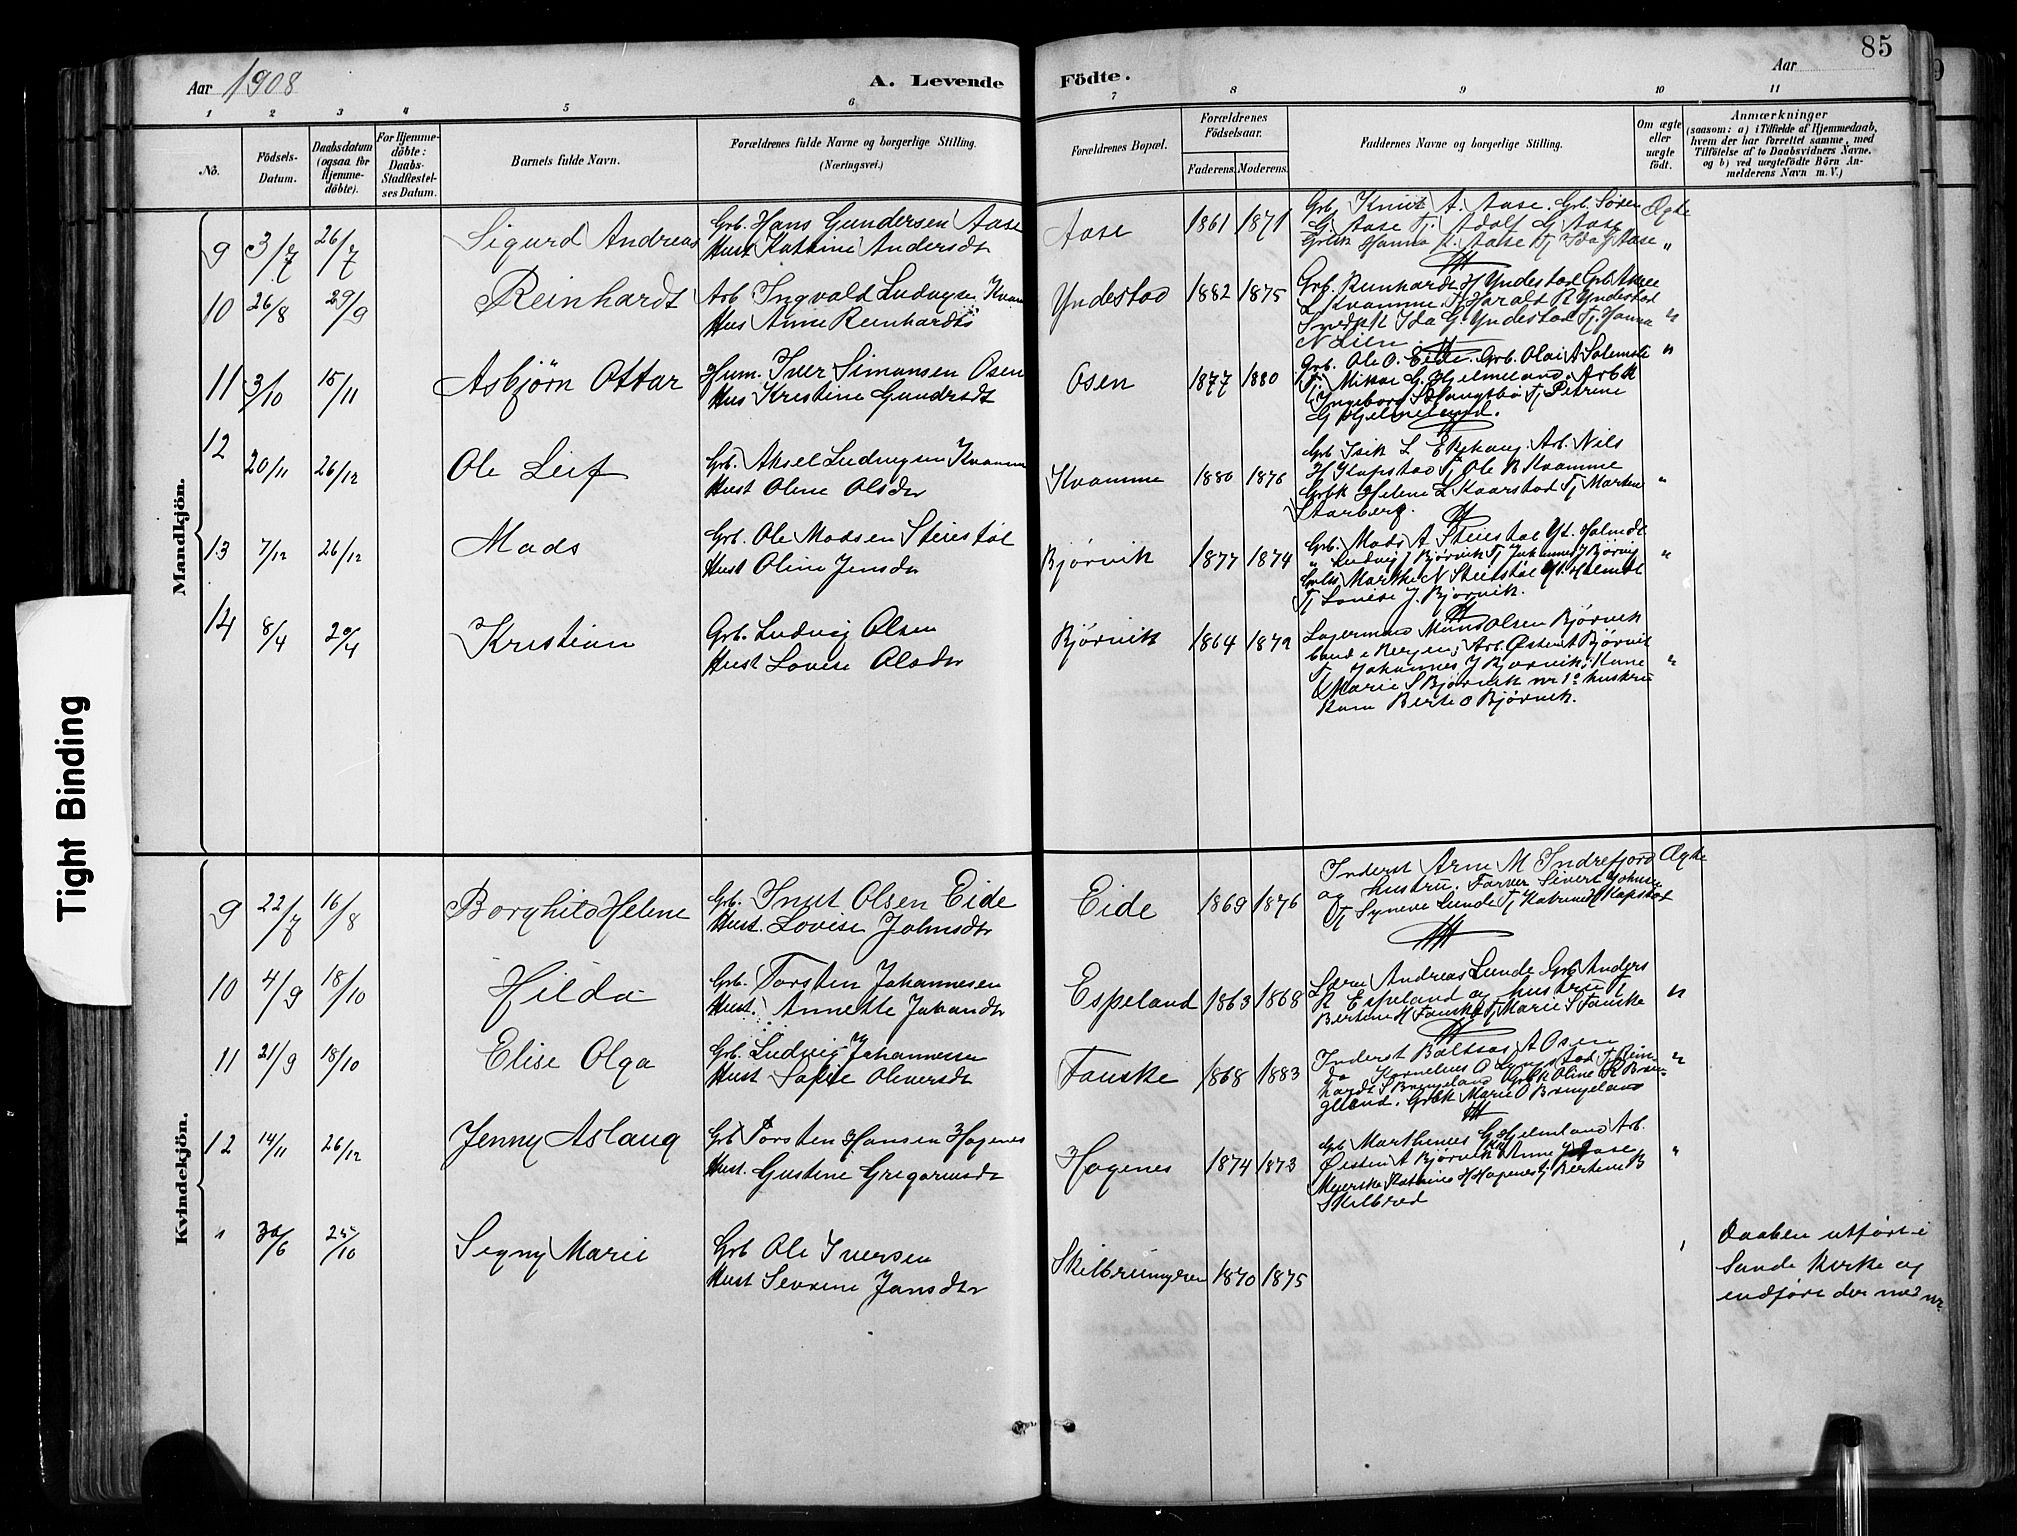 85
Aar 1908
A. Levende Födte.
Aar
1 2 3 4 5 6 7 8 9 10 11
No.
Födsels-
Datum.
Daabsdatum
(ogsaa for
Hjemme-
döbte).
For Hjemme-
döbte:
Daabs-
Stadfæstel-
ses Datum.
Barnets fulde Navn.
Forældrenes fulde Navne og borgerlige Stilling.
(Næringsvei.)
Forældrenes Bopæl.
Forældrenes
Födselsaar.
Faderens. Moderens.
Faddernes Navne og borgerlige Stilling.
Om ægte
eller
uægte
födt.
Anmærkninger
(saasom: a) i Tilfælde af Hjemmedaab,
hvem der har forrettet samme, med
Tilföielse af to Daabsvidners Navne,
og b) ved uægtefödte Börn An-
melderens Navn m. V.)
Mandkjön.
9 3/7 26/7 Sigurd Andreas
Grb. Hans Gundersen Aase
Hust Kathrine Andersdt
Aase 1861 1871
Grb. Knut A. Aase. Grb. Sören
G Aase Tj. Adolf G Aase
Grbk Hanna A. Aase Tj Ida G Aase
Ægte
10 26/8 29/9 Reinhardt
Arb Ingvald Ludvigsen Kvam
Hus Anne Reinhardts
Yndestad 1882 1875
Grb. Reinhardt H Yndestad Grb.
L Kvamme. Tj Harald R Yndestad
Ida G. Yndestad Tj. Hanna
N Lien
"
11 3/10 15/11 Asbjørn Ottar
Hum. Iver Simonsen Osen
Hus Kristine Gundersdt
Osen 1877 1880
Grb. Ole O. Eide. Grb. Olai A
Tj. Mikal G. Hjelmeland. Arbk
Ingeborg Tj Petrine
G Hjelmeland.
"
12 20/11 26/12 Ole Leif
Grb. Aksel Ludvigsen Kvamme
Hust Oline Olsdtr
Kvamme 1880 1876
Grb L Ekehaug. Arb. Nils
H Kapstad Tj Ole B Kvamme
Grbk Helene L Kaarstad Tj Marten
Storberg.
"
13 7/12 26/12 Mads
Grb. Ole Madsen Steistöl
Hust Oline Jensdtr
Bjørvik 1877 1874
Grb. Mads A. Steistöl Yt. Holmedl
" Ludvig J Bjørvik Tj Johannes J Bjørvig
Marthe N Steistöl Yt. Holmedl
Tj Lovise J. Bjørvik.
"
14 8/4 20/4 Kristian
Grb. Ludvig Olsen
Hust Lovise Olsdtr
Bjørvik 1864 1872
Lagermand Olsen Bjørvik
Bergen; Arb. Østen A Bjørvik
Tj Johannes J Bjørvik; Kone
Marie S Bjørvik nr 1º hustru
Kone Berte O Bjørvik.
"
Kvindekjön.
9 22/7 16/8 Borghild Helene
Grb. Knut Olsen Eide
Hust. Lovise Johnsdtr
Eide 1869 1876
Inderst Arne M Indrefjord
og hustru, Farver Sivert Johnsen
Tj Syneve Lunde Tj Katrine H Kapstad
Ægte
10 4/9 18/10 Hilda
Grb. Torsten Johannesen
Hust. Annette Johansdtr
Espeland 1863 1868
Lærer Andreas Lunde Grb Anders
R Espeland og hustru Tj
Bertine H Fauske Tj Marie S Fauske
"
11 21/9 18/10 Elise Olga
Grb. Ludvig Johannessen
Hust Sofie Oliversdt
Fauske 1868 1883
Inderst Baltsar A Osen
do Kornelius O Tj Rein-
hardt S Brengeland Grbk Oline R Bren-
geland. Grbk Marie O Brengeland
"
12 14/11 26/12 Jenny Aslaug
Grb Torsten Hansen Hagenes
Hust. Gustine Gregoriusdt
Hagenes 1874 1873
Grb Marthinus G Hjelmeland Arb.
Østen A Bjørvik Anne J Aase
Meierske Kathrine H Hagenes Tj Bertine B
Skilbred
"
" 30/6 25/10 Signy Marie
Grb Ole Iversen
Hust Severine Jansdtr
1870 1875
Daaben utført i
Sande Kirke og
indført der med nr.
Tight Binding